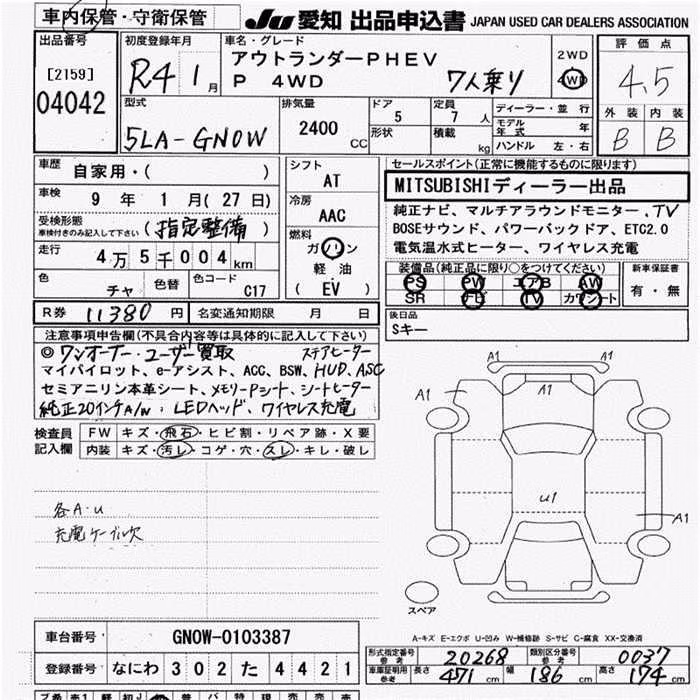 車内保管・守衛保管
JU 愛知 出品申込書 JAPAN USED CAR DEALERS ASSOCIATION
出品番号
[2159]
04042
初度登録年月
R4 1月
車名・グレード
アウトランダーPHEV
P 4WD 7人乗り
2WD
4WD
評価点
4.5
外装 内装
B B
型式
5LA-GN0W
排気量
2400 CC
ドア
5
形状
定員
7 人
積載
kg
ディーラー・並行
モデル年式 年
ハンドル 左・右
車歴
自家用・( )
車検
9年 1月(27日)
受検形態
車検付きのみ記入して下さい
(指定整備)
走行
4万5千004km
色
チャ
色替
色コード
C17
シフト
AT
冷房
AAC
燃料
ガソリン
軽・油
( EV )
セールスポイント(正常に機能するものに限ります)
MITSUBISHIディーラー出品
純正ナビ、マルチアラウンドモニター、TV
BOSEサウンド、パワーバックドア、ETC2.0
電気温水式ヒーター、ワイヤレス充電
装備品(純正品に限り○をつけてください)
PS PW エアB AW
SR ナビ TV カワシート
新車保証書
有・無
R券 11380円
名変通知期限 月 日
後日品
Sキー
注意事項申告欄(不具合内容等は具体的に記入して下さい)
◎ワンオーナー・ユーザー買取 ステアヒーター
マイパイロット、e-アシスト、ACC、BSW、HUD、ASC
セミアニリン本革シート、メモリーPシート、シートヒーター
純正20インチA/W、LEDヘッド、ワイヤレス充電
検査員記入欄
FW キズ・飛石・ヒビ割・リペア跡・X要
内装 キズ・汚レ・コゲ・穴・スレ・キレ・破レ
各A・U
充電ケーブル欠
A1
A1
A1
U1
A1
スペア
A-キズ E-エクボ U-凹み W-補修跡 S-サビ C-腐食 XX-交換済
車台番号 GN0W-0103387
登録番号 なにわ 302 た 4421
形式指定番号 参考 20268
類別区分番号 参考 0037
車庫証明用 参考 長さ 471cm 幅 186cm 高さ 174cm